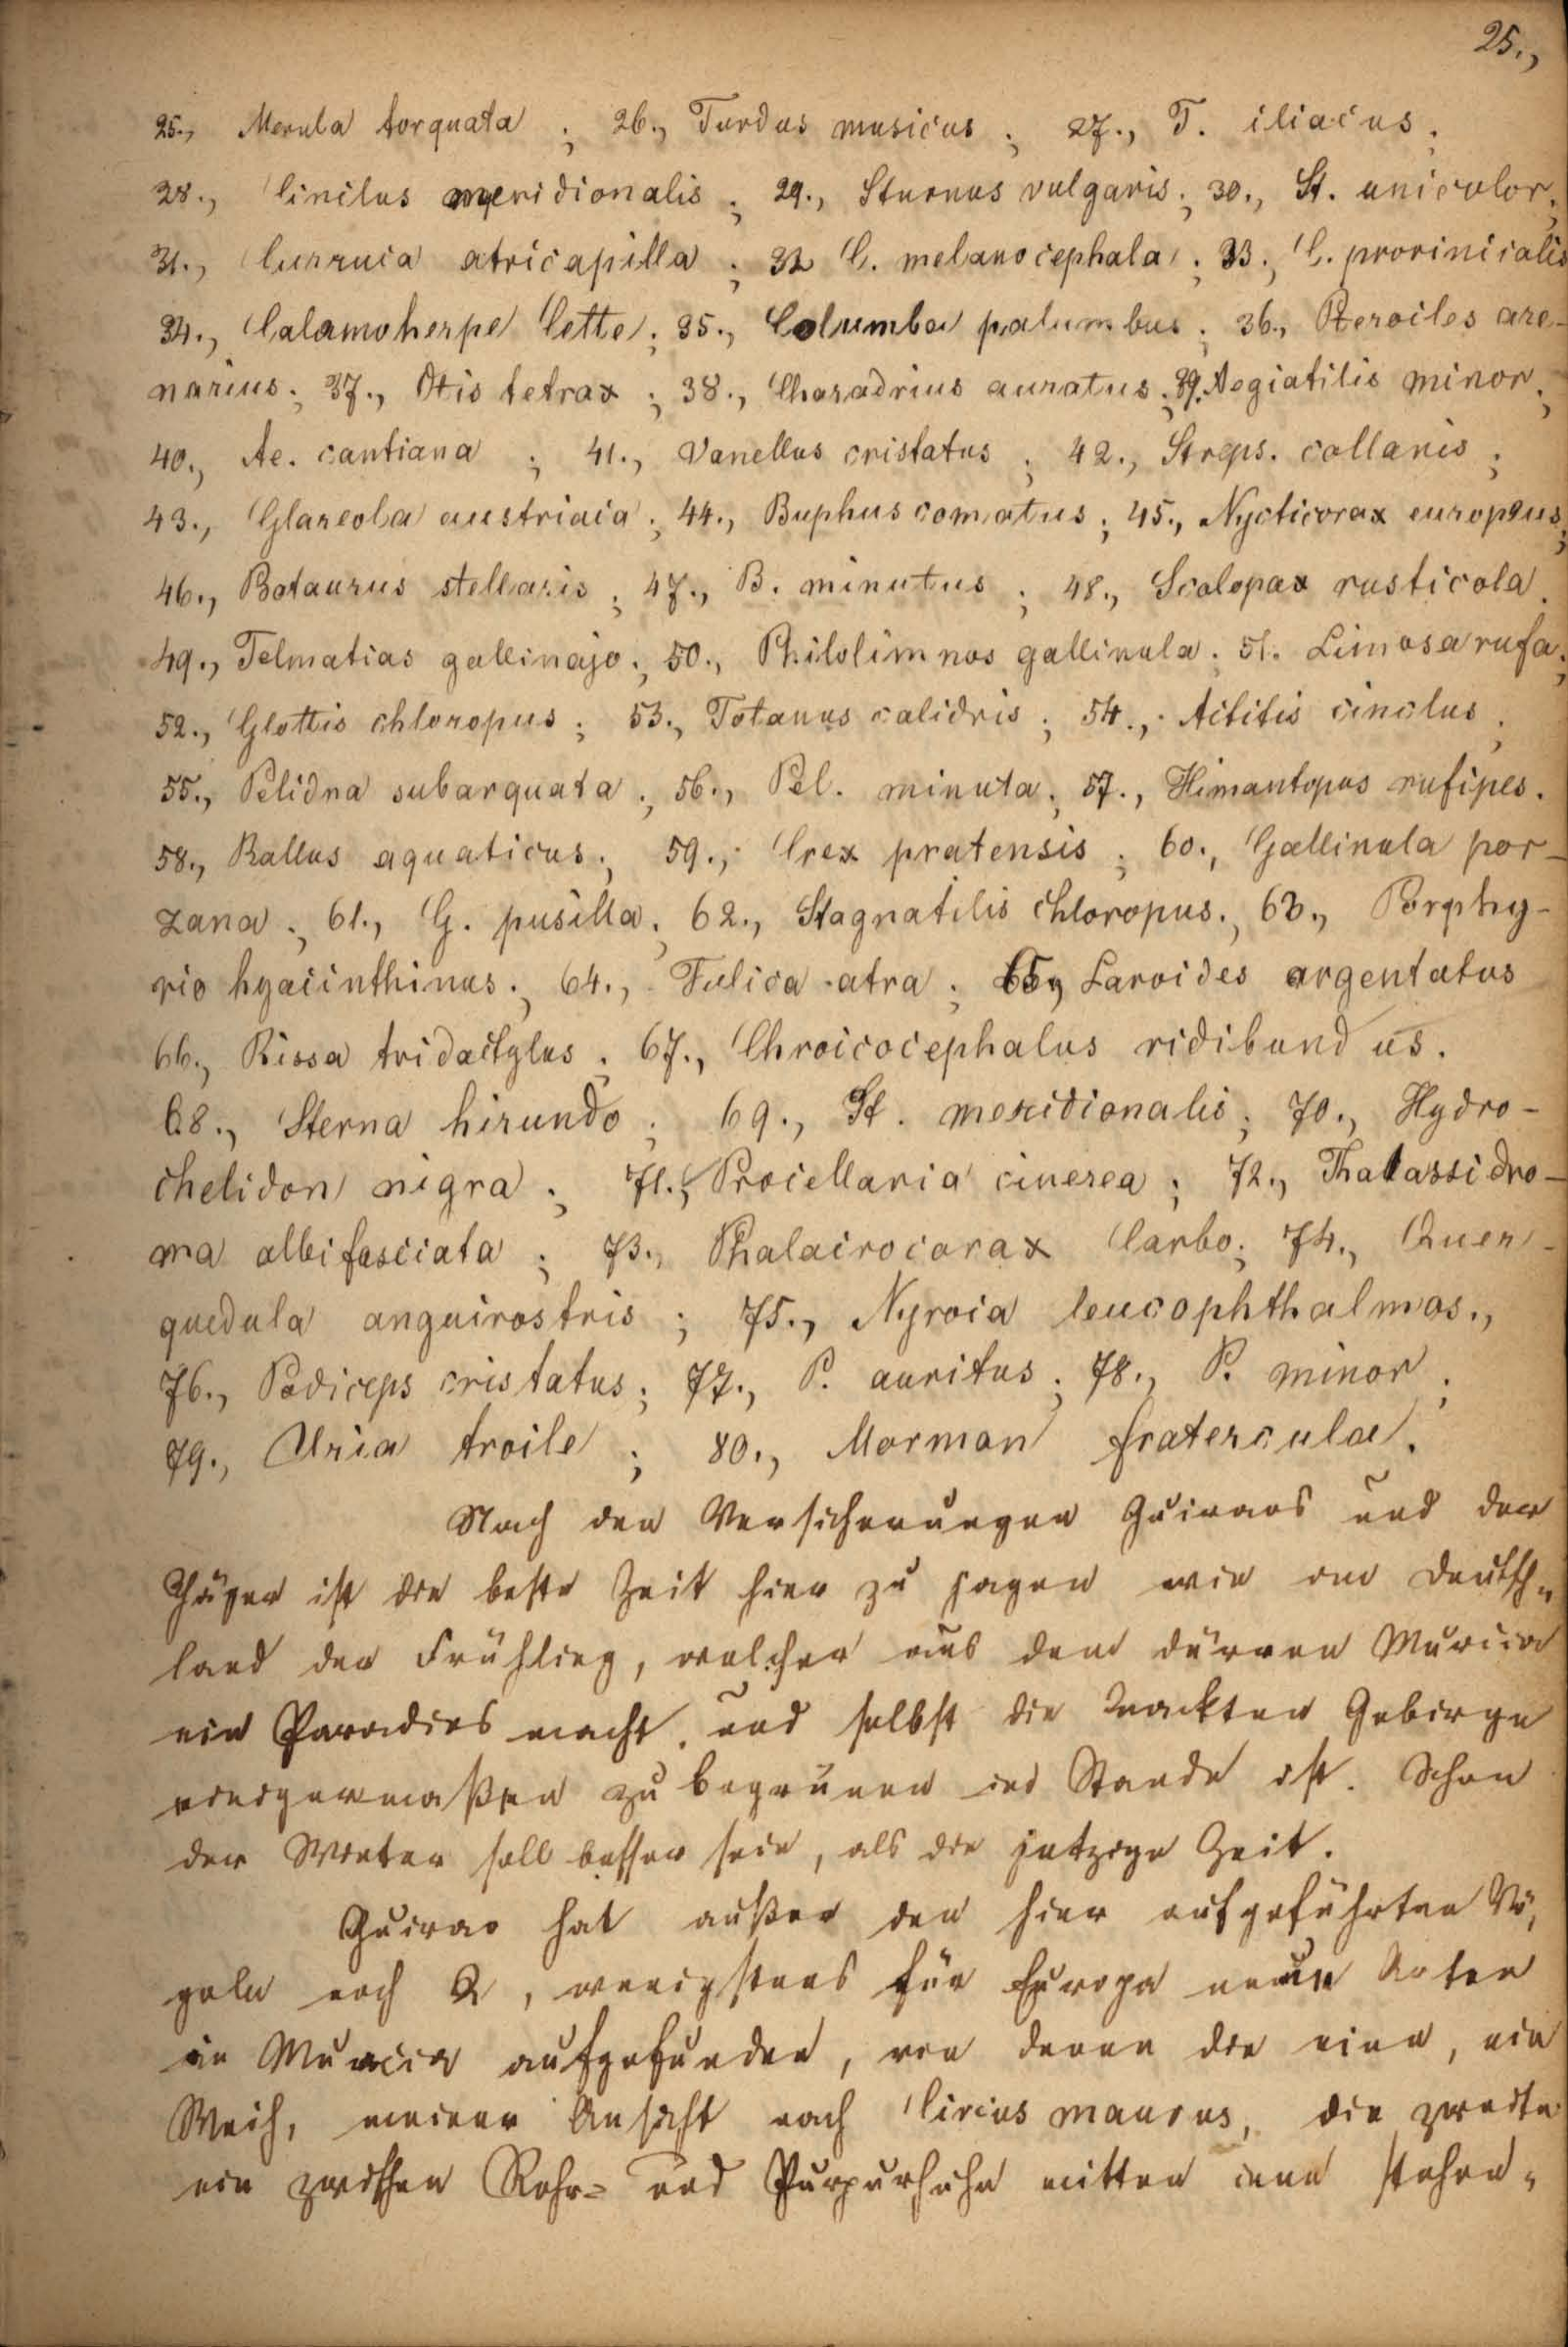 25.,
25., Merula torquata ; 26., Turdus musicus ; 27., T. iliacus ;
28., Cinclus meridionalis ; 29., Sturnus vulgaris ; 30., St. unicolor ;
31., Curruca atricapilla ; 32 C. melanocephala ; 33., C. provincialis
34., Calamoherpe Cetti ; 35., Columba palumbus ; 36., Pterocles are-
narius ; 37., Otis tetrax ; 38., Charadrius auratus ; 39., Aegialitis minor ;
40., Ae. cantiana ; 41., Vanellus cristatus ; 42., Streps. collaris ;
43., Glareola austriaca ; 44., Buphus comatus ; 45., Nycticorax europaeus ;
46., Botaurus stellaris ; 47., B. minutus ; 48., Scolopax rusticola .
49., Telmatias gallinago ; 50., Philolimnos gallinula ; 51. Limosa rufa ;
52., Glottis chloropus ; 53., Totanus calidris ; 54., Actitis cinclus ;
55., Pelidna subarquata ; 56., Pel. minuta ; 57., Himantopus rufipes .
58., Rallus aquaticus ; 59., Crex pratensis ; 60., Gallinula por-
zana ; 61., G. pusilla ; 62., Stagnatilis chloropus ; 63., Porphy-
rio hyacinthinus ; 64., Fulica atra ; 65., Laroides argentatus
66., Rissa tridactylus ; 67., Chroicocephalus ridibundus .
68., Sterna hirundo ; 69., St. meridionalis ; 70., Hydro-
chelidon nigra ; 71., Procellaria cinerea ; 72., Thalassidro-
ma albifasciata ; 73., Phalacrocorax Carbo ; 74., Quer-
quedula anguirostris ; 75., Nyroca leucophthalmos .,
76., Podiceps cristatus ; 77., P. auritus ; 78., P. minor ;
79., Uria troile ; 80., Mormon fratercula .
Nach den Versicherungen Guiraos und der
Jäger ist die beste Zeit hier zu jagen wie in Deutsch-
land der Frühling, welcher aus dem dürren Murcia
ein Paradies macht, und selbst die nackten Gebirge
einigermaßen zu begrünen im Stande ist. Schon
der Winter soll besser sein, als die jetzige Zeit.
Guirao hat außer den hier aufgeführten Vö-
geln noch 2, wenigstens für Europa neue Arten
in Murcia aufgefunden, von denen die eine, ein
Weih, meiner Ansicht nach Circus maurus, die zweite
ein zwischen Rohr- und Purpurhuhn mitten inne stehen-